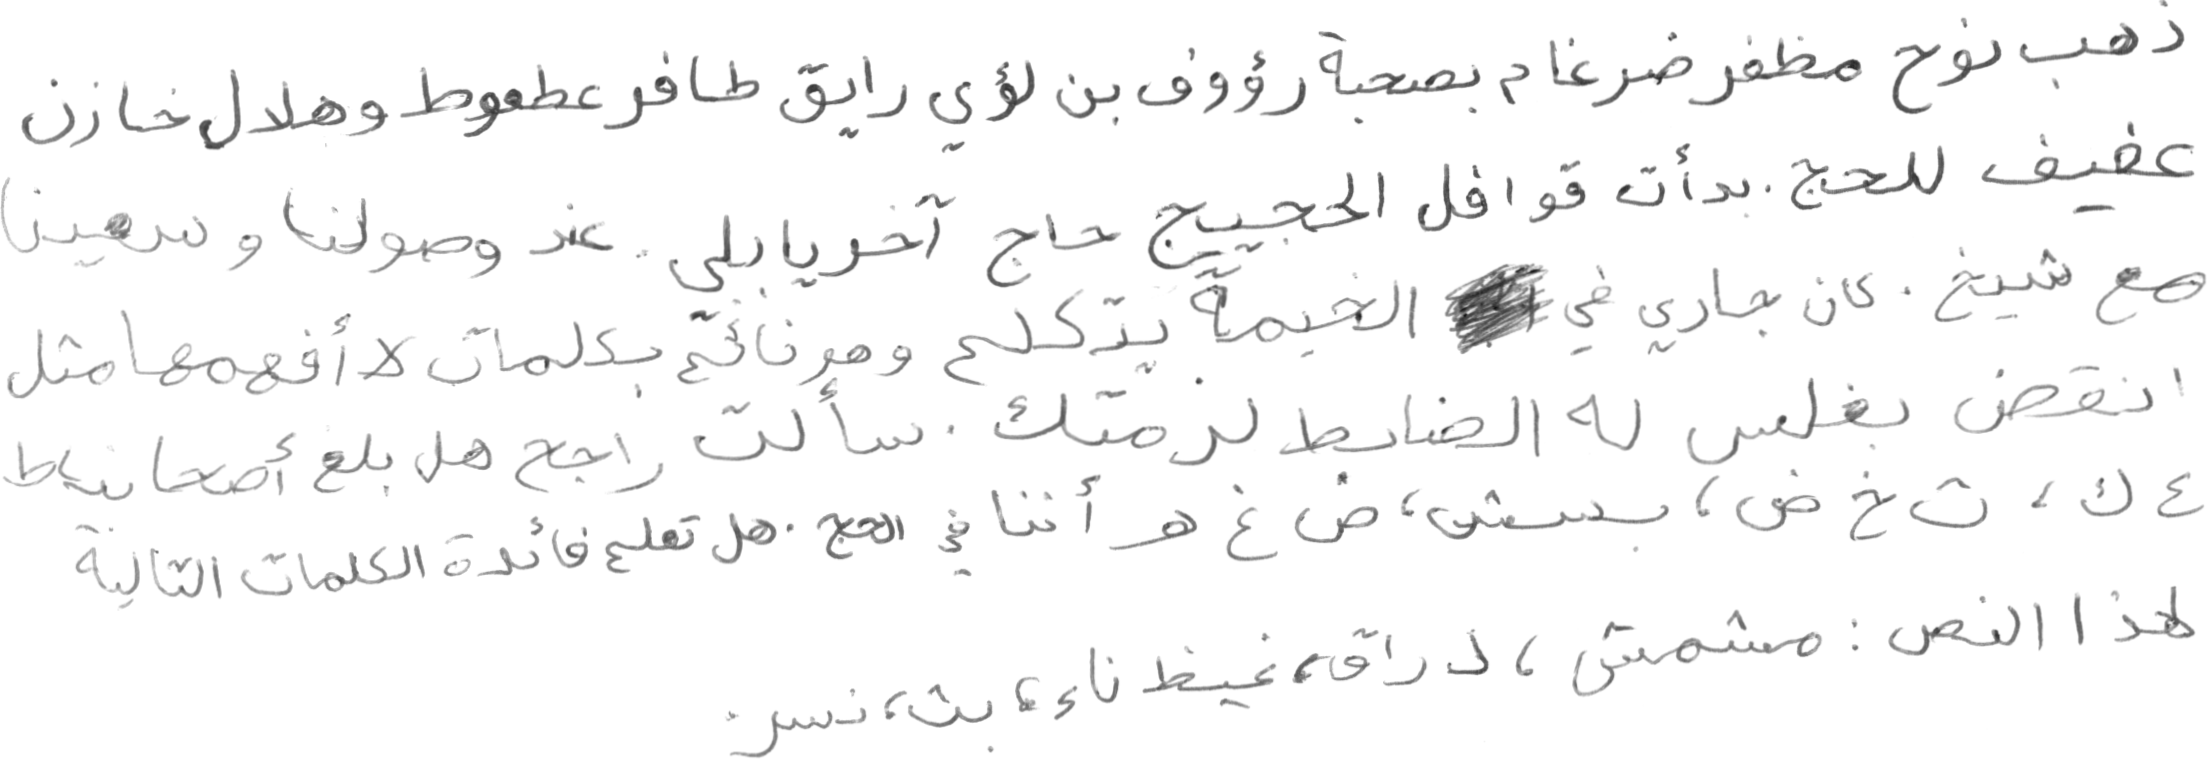 ذهب نوح مظفر ضرغام بصحبة رؤوف بن لؤي رايق ظافر عطعوط وهلال خازن
عفيف للحج. بدأت قوافل الحجيج حاج آخر يا بلي. عند وصولنا و سعينا
مع شيخ. كان جاري في الخيمة يتكلم وهو نائم بكلمات لا أفهمها مثل
انقض بغلس له الضابط لزمتك. سألت راجح هل بلغ أصحا
ع ك، ث خ ض، بسش، ض غ هـ أننا في الحج. هل تعلم فائدة الكلمات التالية
لهذا النص: مشمش، دراق، غيظ ناء، بث، نسر.